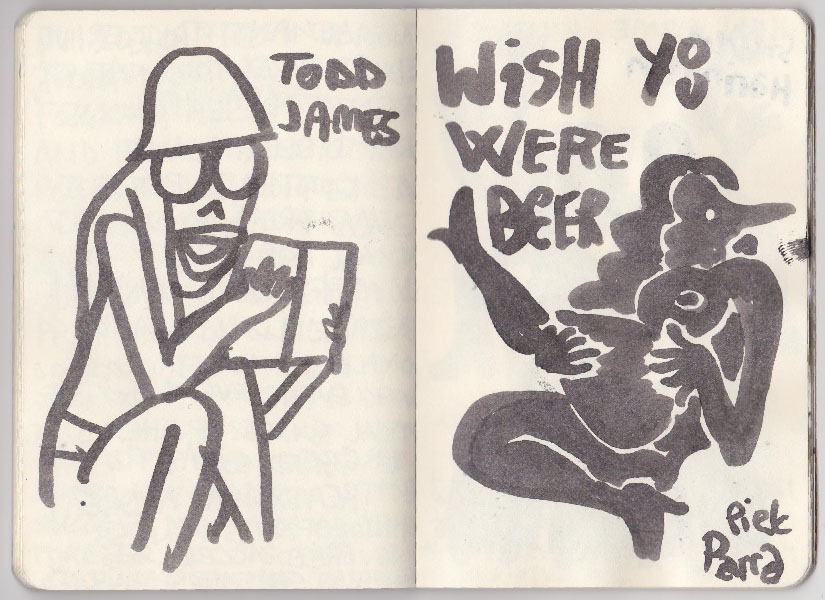 TODD
JAMES
WiSH YOU
WERE
BEER
Piet
Parra